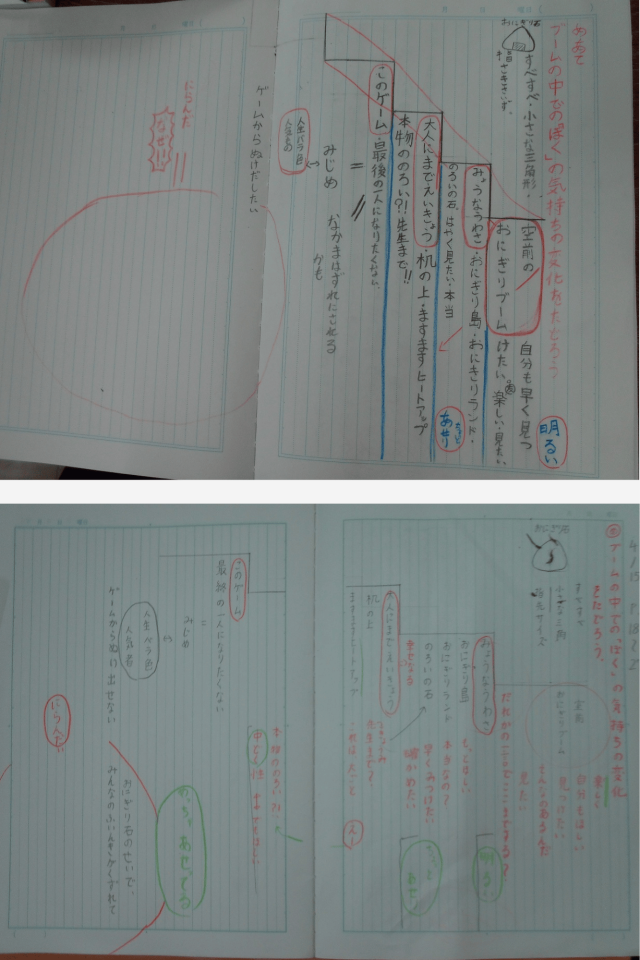 めあて
ブームの中での「ぼく」の気持ちの変化をたどろう
おにぎり石
すべすべ・小さな三角形・
指さきサイズ。
空前の
おにぎりブーム
自分も早く見つ
けたい。楽しい・見たい
明るい
みょうなうわさ・おにぎり島・おにぎりランド・
のろいの石、はやく見たい・本当
あせり
大人にまでえいきょう・机の上・ますますヒートアップ
本物ののろい?!先生まで!!
このゲーム・最後の一人になりたくない
=
みじめ
なかまはずれにされる
かも
人生バラ色
人気もの
ゲームからぬけだしたい
にらんだ
なぜ!!
4/15
ブームの中での「ぼく」の気持ちの変化
をたどろう。
おにぎり石
すべすべ
小さな三角
指先サイズ
空前
おにぎりブーム
楽しく
自分もほしい
見つけたい
そんなのあるんだ
見たい
みょうなうわさ
おにぎり島
おにぎりランド
のろいの石
幸せになる
だれかの一言でここまでする?
もっとほしい
本当なの?
早くみつけたい
確かめたい
明るい
大人にまでえいきょう
机の上
ますますヒートアップ
先生まで?
このゲーム
最後の一人になりたくない
=
みじめ
人生バラ色
人気者
ゲームからぬけ出せない
おにぎり石のせいで、